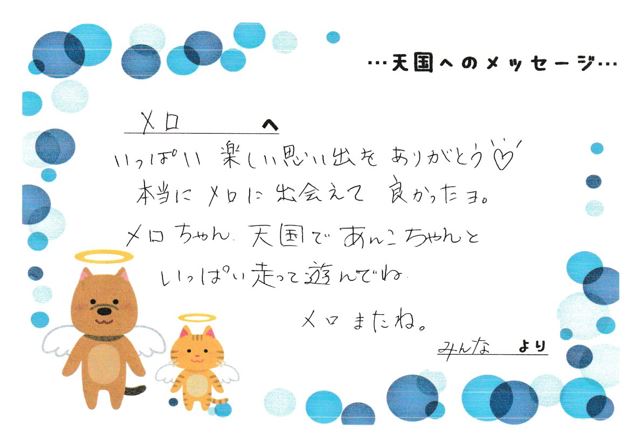 …天国へのメッセージ…
メロ へ
いっぱい 楽しい思い出を ありがとう♡
本当に メロに 出会えて 良かったョ。
メロちゃん、天国で あんこちゃんと
いっぱい走って遊んでね
メロ またね。
みんな より